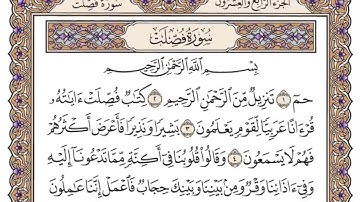 الجزء الرابع والعشرون سورة فصلت
سُورَةُ فُصِّلَتْ
بِسْمِ اللَّهِ الرَّحْمَٰنِ الرَّحِيمِ
حمٓ ١ تَنزِيلٌ مِّنَ الرَّحْمَٰنِ الرَّحِيمِ ٢ كِتَٰبٌ فُصِّلَتْ ءَايَٰتُهُۥ
قُرْءَانًا عَرَبِيًّا لِّقَوْمٍ يَعْلَمُونَ ٣ بَشِيرًا وَنَذِيرًا فَأَعْرَضَ أَكْثَرُهُمْ
فَهُمْ لَا يَسْمَعُونَ ٤ وَقَالُوا۟ قُلُوبُنَا فِىٓ أَكِنَّةٍ مِّمَّا تَدْعُونَآ إِلَيْهِ
وَفِىٓ ءَاذَانِنَا وَقْرٌ وَمِنۢ بَيْنِنَا وَبَيْنِكَ حِجَابٌ فَٱعْمَلْ إِنَّنَا عَٰمِلُونَ